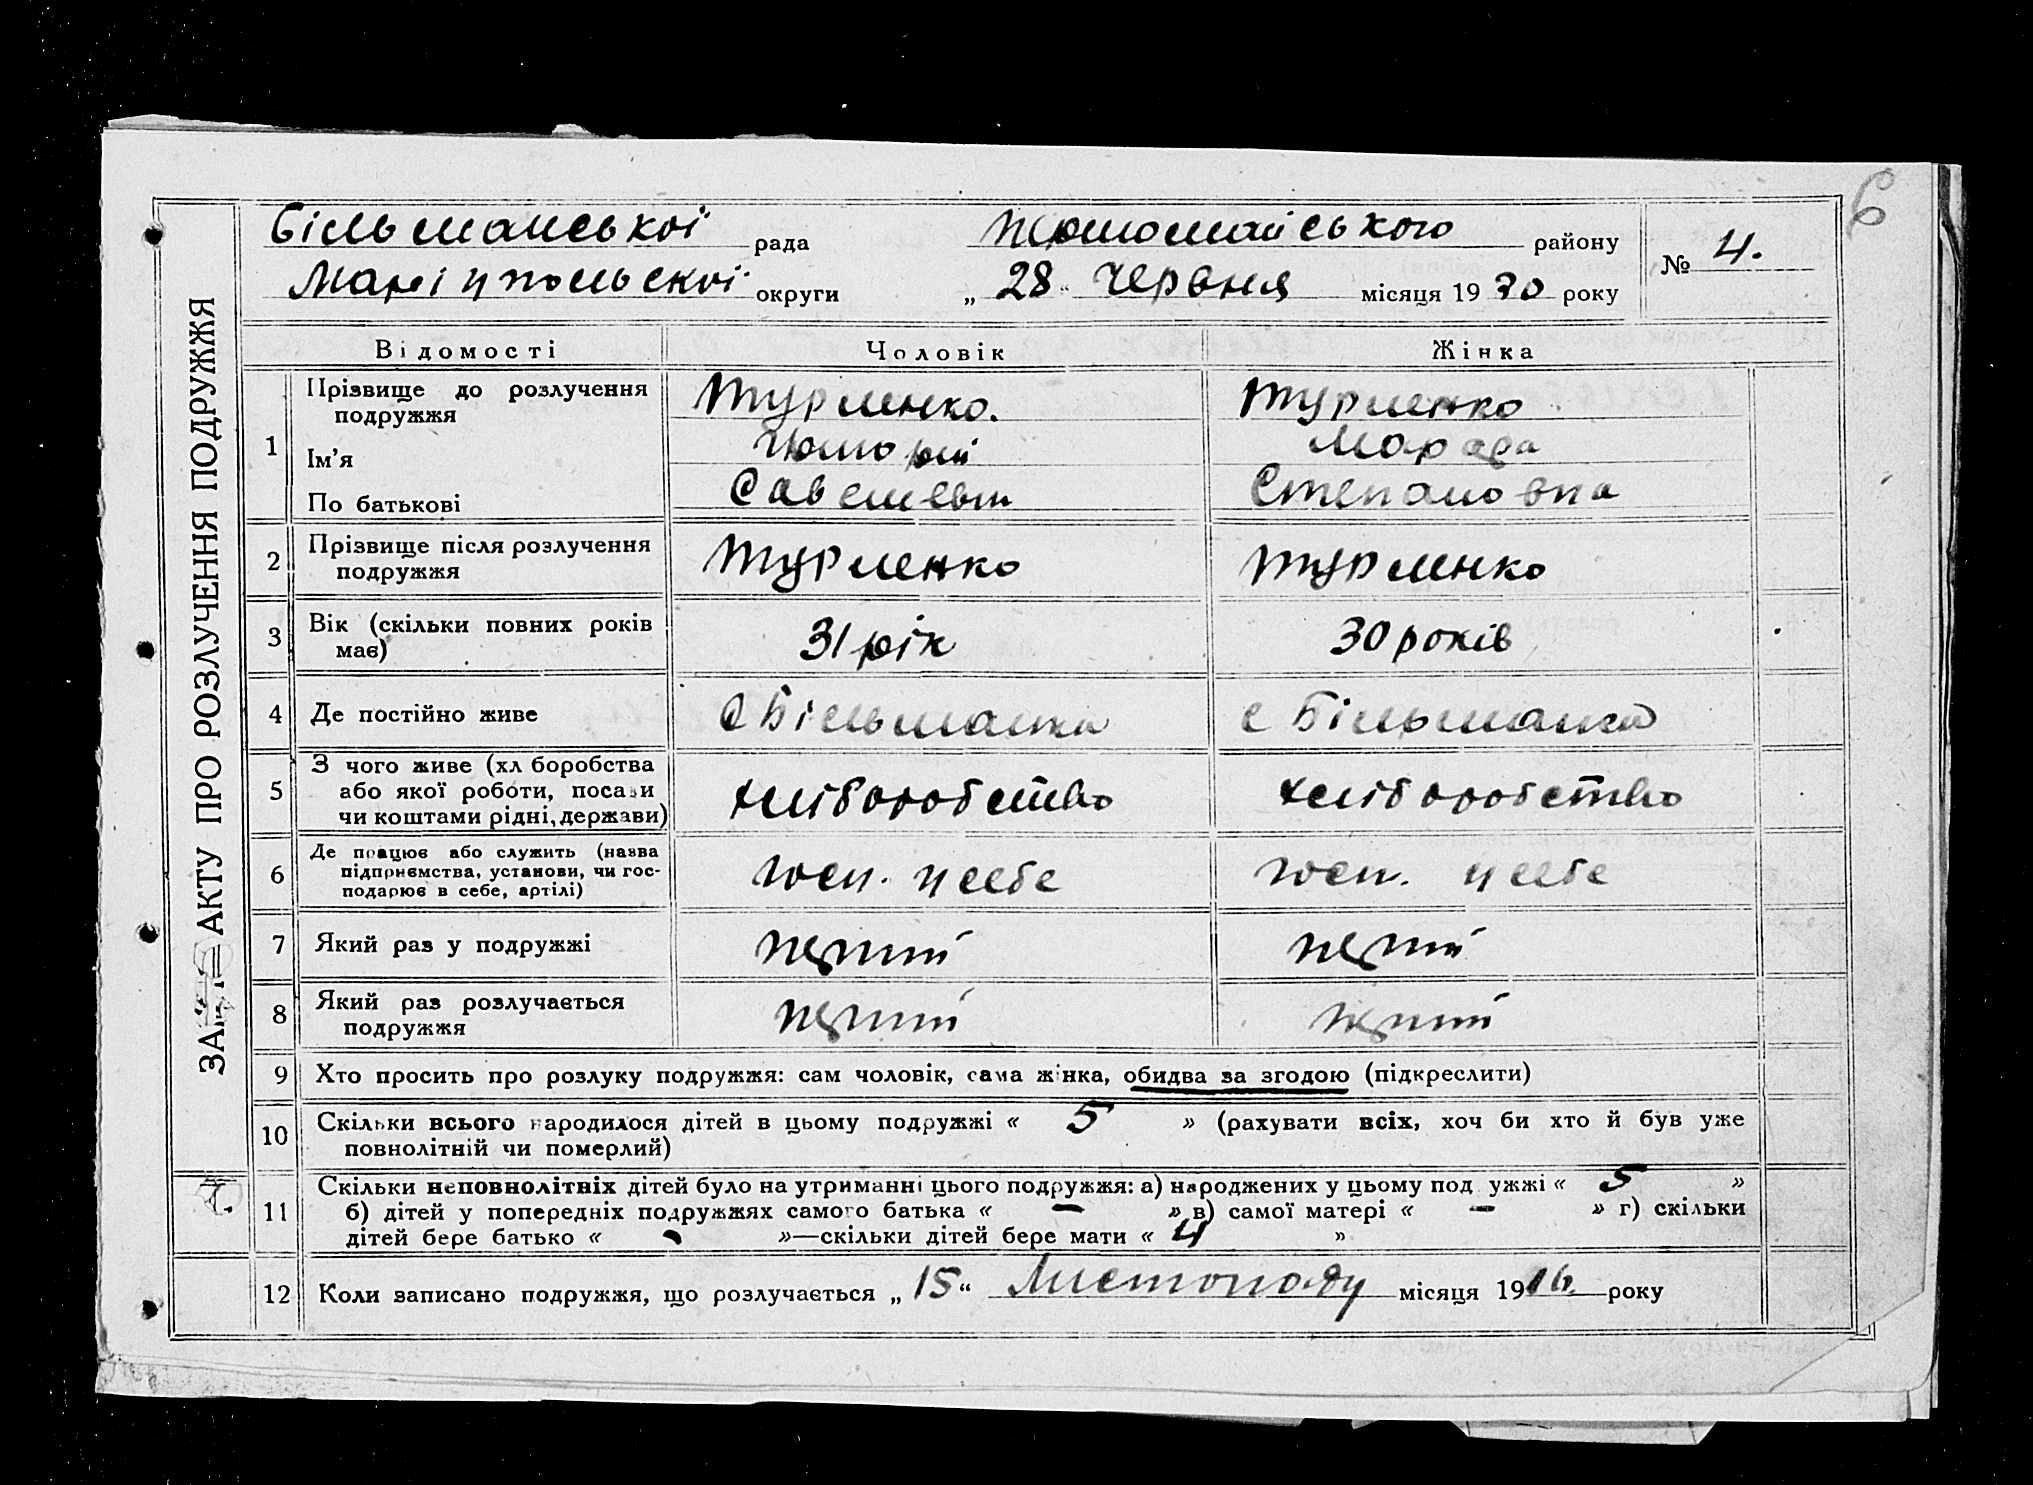 6
Більшанської рада Першомайського району № 4.
Маріупольської округи „ 28 “ Червня місяця 19 30 року
ПРО РОЗЛУЧЕННЯ ПОДРУЖЖЯ
Відомості Чоловік Жінка
1 Прізвище до розлучення подружжя Турменко. Турменко
Ім’я
По батькові Степановна
2 Прізвище після розлучення подружжя Турменко Турменко
3 Вік (скільки повних років має) 31 рік 30 років
4 Де постійно живе с Більманка с Більманка
5 З чого живе (хл боробства або якої роботи, посади чи коштами рідні, держави) хліборобство хліборобство
6 Де працює або служить (назва підприємства, установи, чи господарює в себе, артілі) госп. у себе госп. у себе
7 Який раз у подружжі перший перший
8 Який раз розлучається подружжя перший перший
9 Хто просить про розлуку подружжя: сам чоловік, сама жінка, обидва за згодою (підкреслити)
10 Скільки всього народилося дітей в цьому подружжі « 5 » (рахувати всіх, хоч би хто й був уже
повнолітній чи померлий)
11 Скільки неповнолітніх дітей було на утриманні цього подружжя: а) народжених у цьому под ужжі « 5 »
б) дітей у попередніх подружжях самого батька « — » в) самої матері « — » г) скільки
дітей бере батько « »—скільки дітей бере мати « 4 »
12 Коли записано подружжя, що розлучається „ 15 “ Листопаду місяця 19 16. року